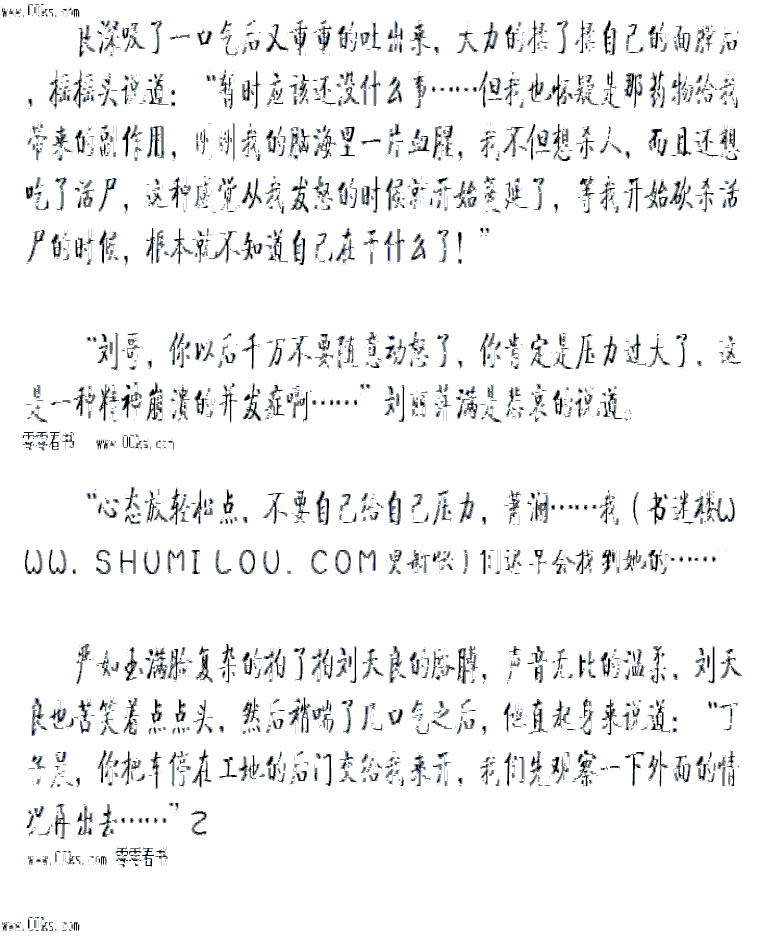 www.00ks.com
良深吸了一口气后又重重的吐出来，大力的揉了揉自己的面膛后
，摇摇头说道：“暂时应该还没什么事……但我也怀疑是那药物给我
带来的副作用，刚刚我的脑海里一片血腥，我不但想杀人，而且还想
吃了活尸，这种感觉从我发怒的时候就开始蔓延了，等我开始砍杀活
尸的时候，根本就不知道自己在干什么了！”
“刘哥，你以后千万不要随意动怒了，你肯定是压力过大了，这
是一种精神崩溃的并发症啊……”刘丽萍满是悲哀的说道。
零零看书 www.00ks.com
“心态放轻松点，不要自己给自己压力，萧澜……我（书迷楼W
WW.SHUMILOU.COM更新快）们迟早会找到她的……
严如玉满脸复杂的拍了拍刘天良的胳膊，声音无比的温柔，刘天
良也苦笑着点点头，然后稍喘了几口气之后，他直起身来说道：“丁
子晨，你把车停在工地的后门交给我来开，我们先观察一下外面的情
况再出去……”2
www.00ks.com 零零看书
www.00ks.com